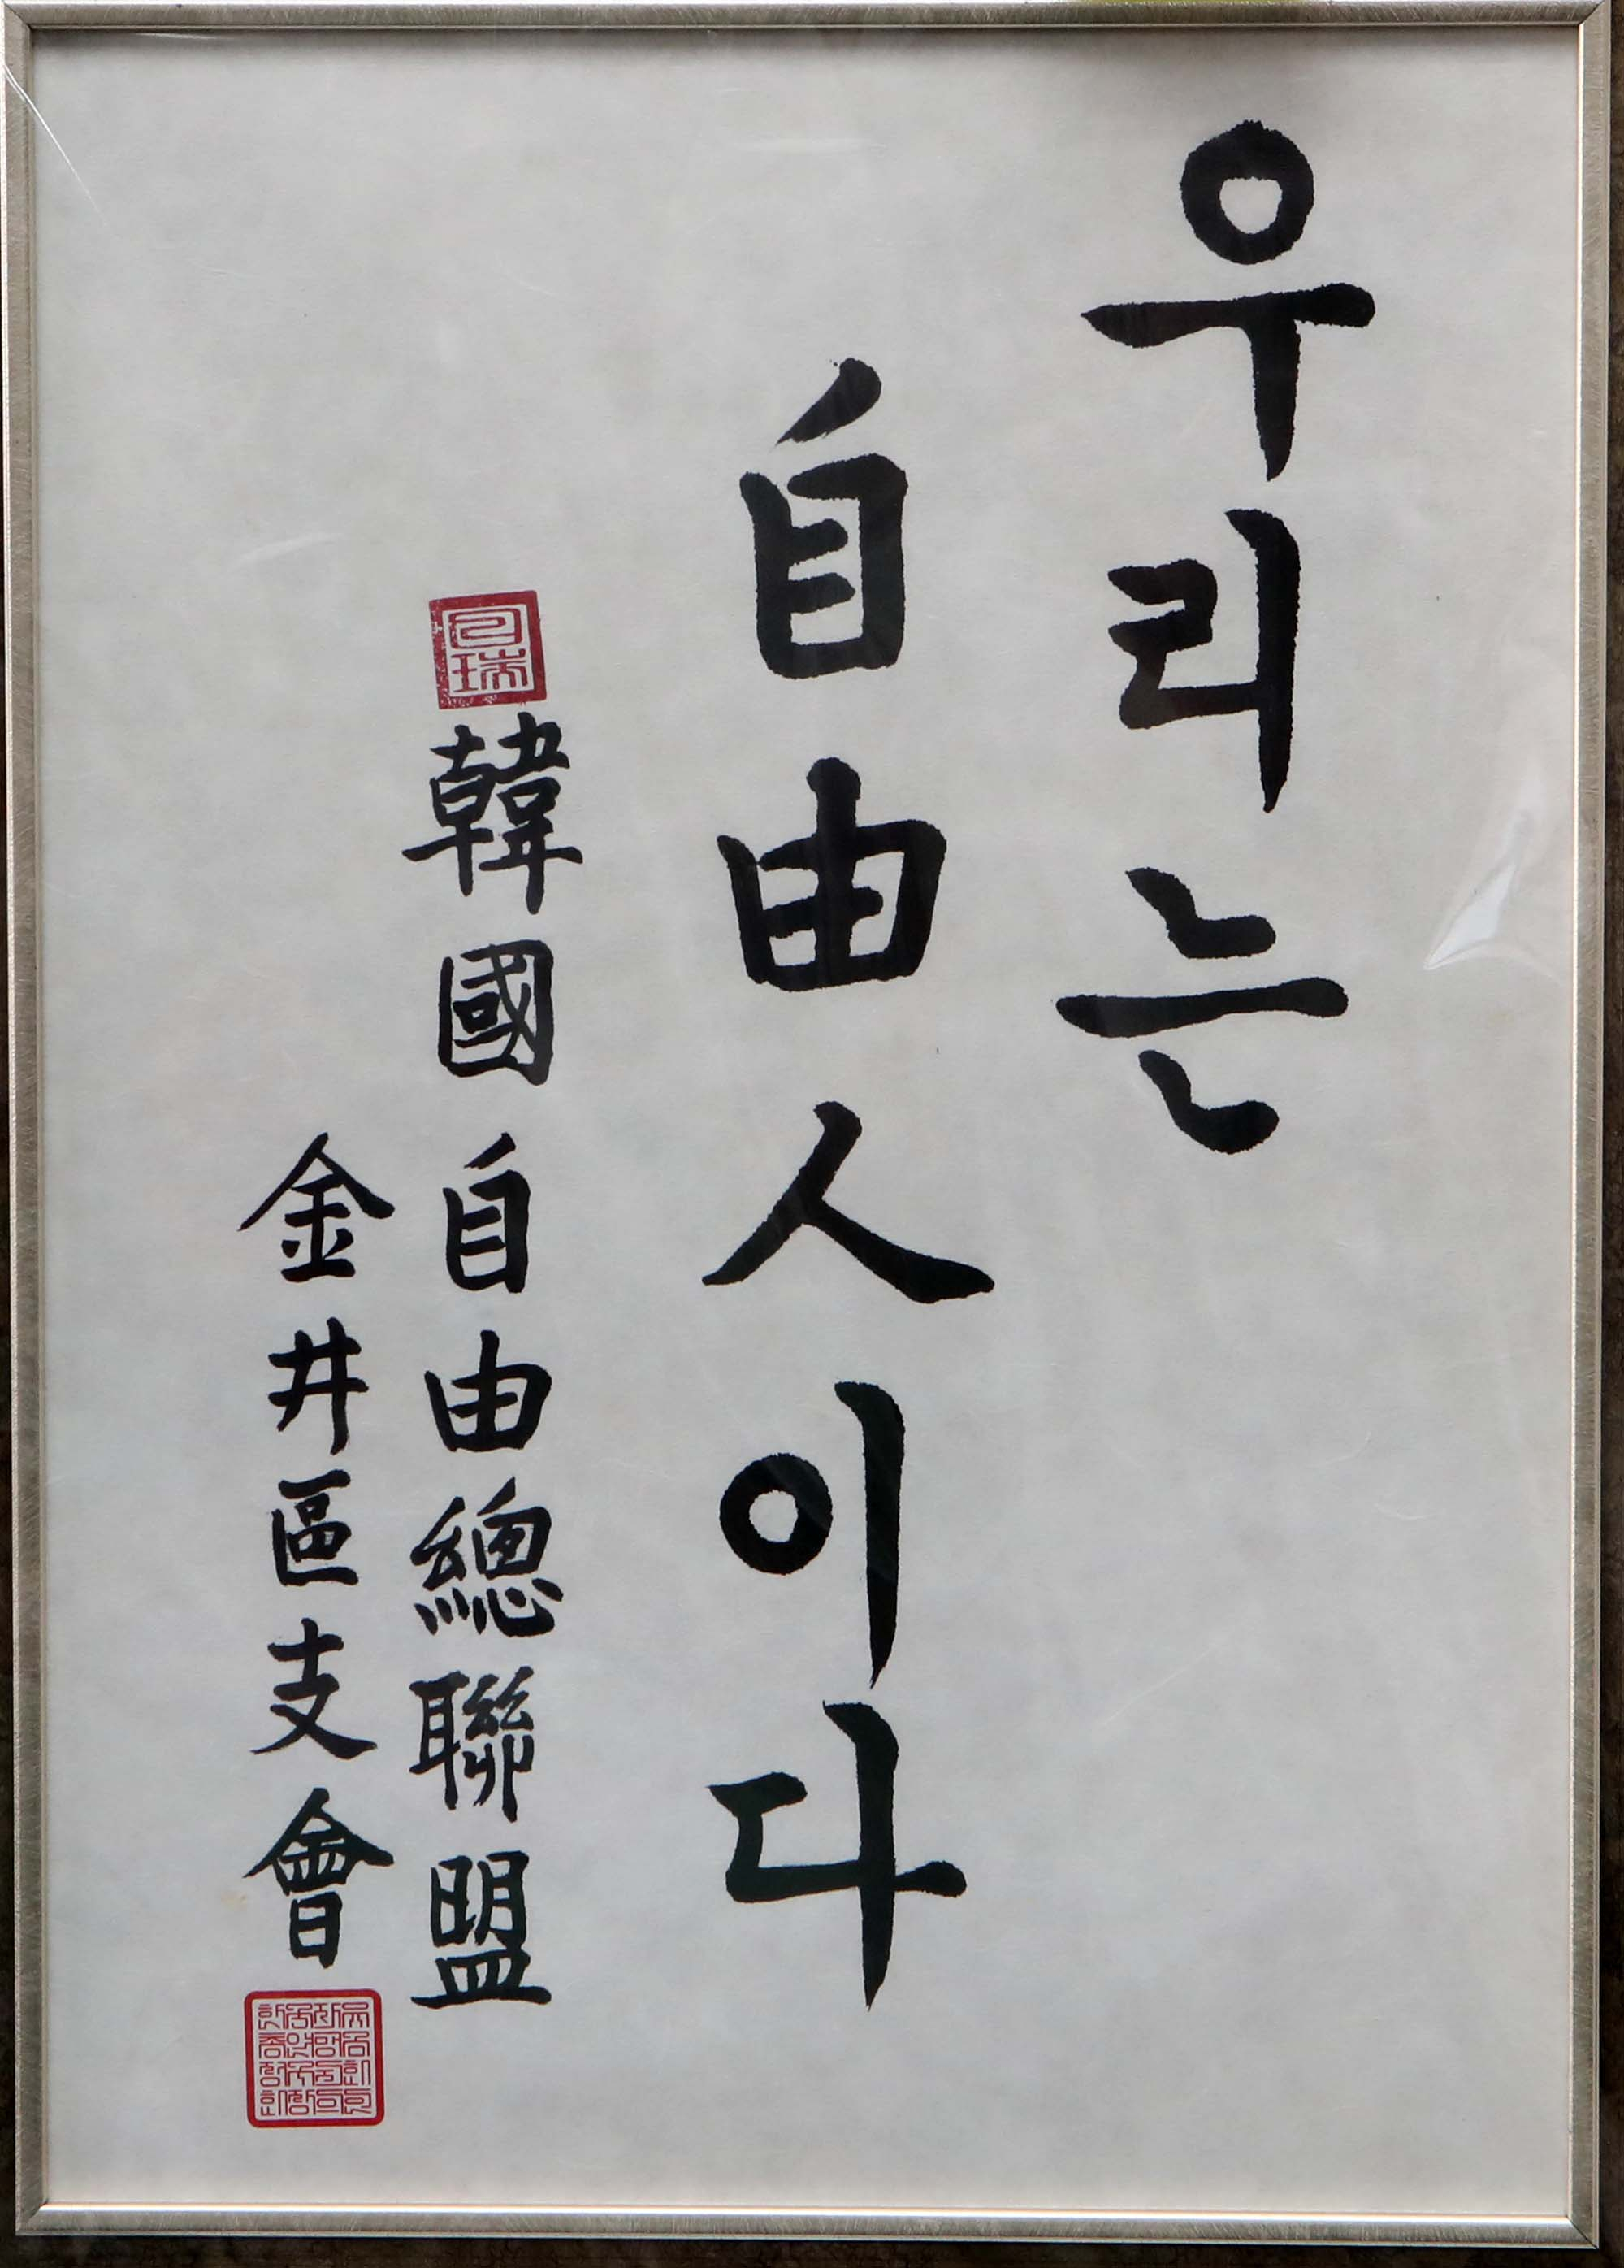 우리는
自由人이다
韓國自由總聯盟
金井區支會